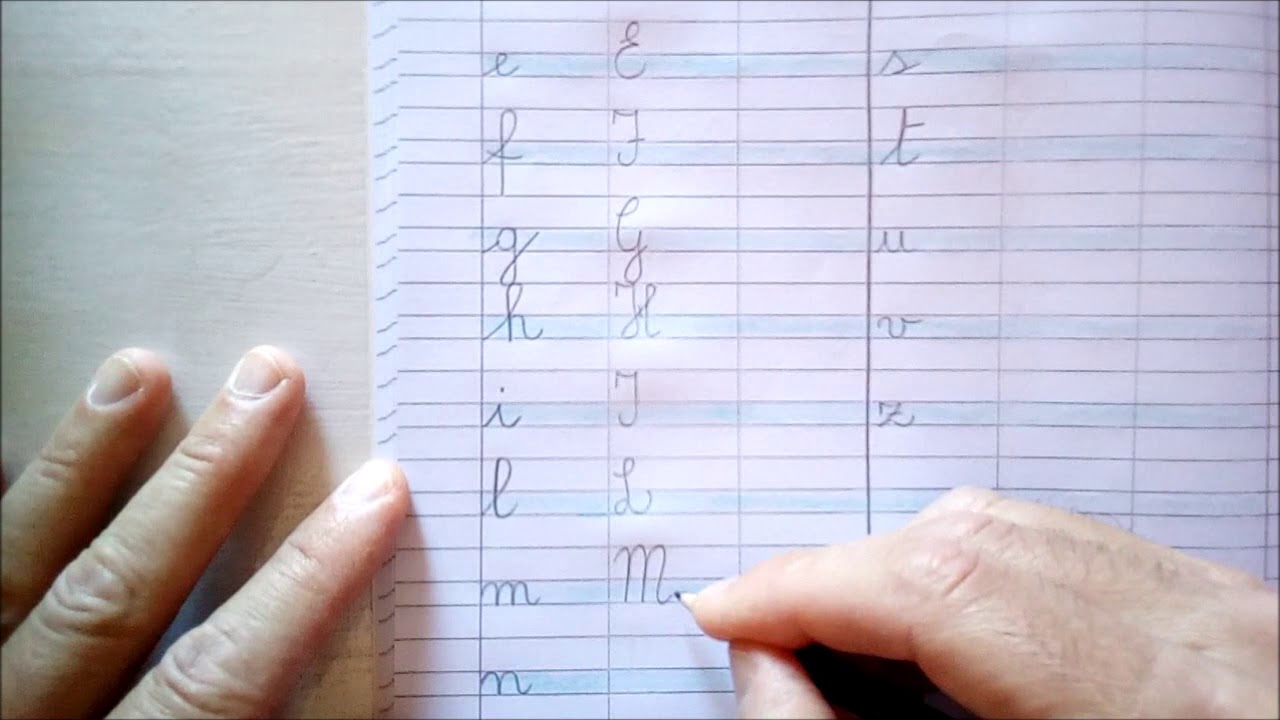 e E s
f F t
g G u
h H v
i I z
l L
m M
n